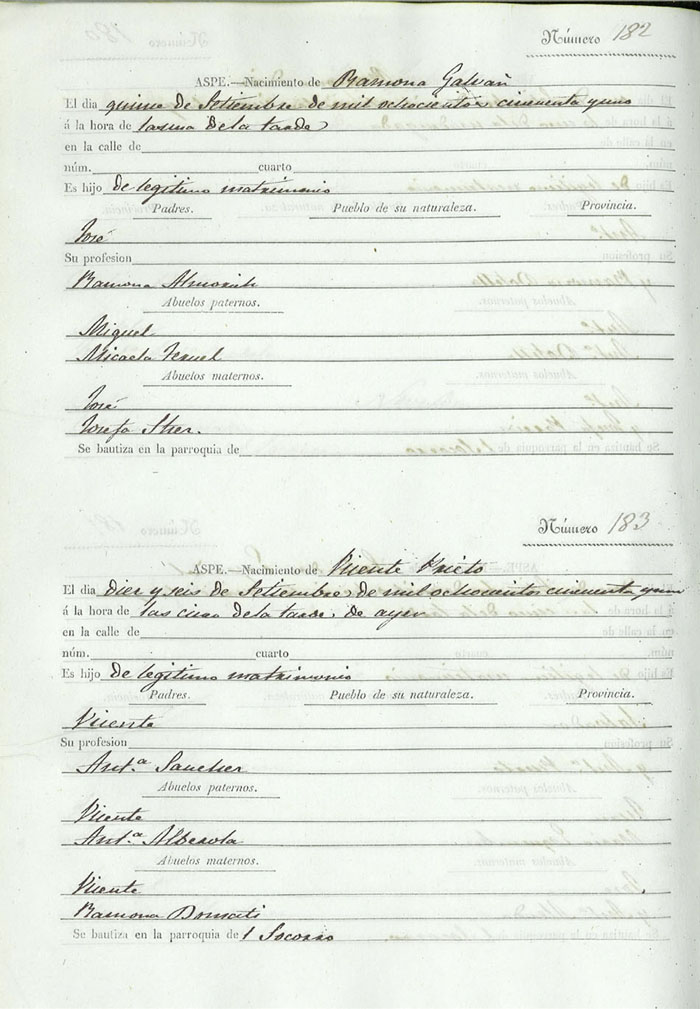 Número 182
ASPE.—Nacimiento de Ramona Galvañ
El dia quince de Setiembre de mil ochocientos cincuenta y uno
á la hora de la una de la tarde
en la calle de
núm. cuarto
Es hijo de legitimo matrimonio
Padres. Pueblo de su naturaleza. Provincia.
José
Su profesion
Ramona
Abuelos paternos.
Miguel
Micaela Teruel
Abuelos maternos.
José
Josefa
Se bautiza en la parroquia de
Número 183
ASPE.—Nacimiento de Vicente Prieto
El dia diez y seis de Setiembre de mil ochocientos cincuenta y uno
á la hora de las cinco de la tarde de ayer
en la calle de
núm. cuarto
Es hijo de legitimo matrimonio
Padres. Pueblo de su naturaleza. Provincia.
Vicente
Su profesion
Ant.ª Sanchez
Abuelos paternos.
Vicente
Ant.ª Alberola
Abuelos maternos.
Vicente
Ramona
Se bautiza en la parroquia de l Socorro